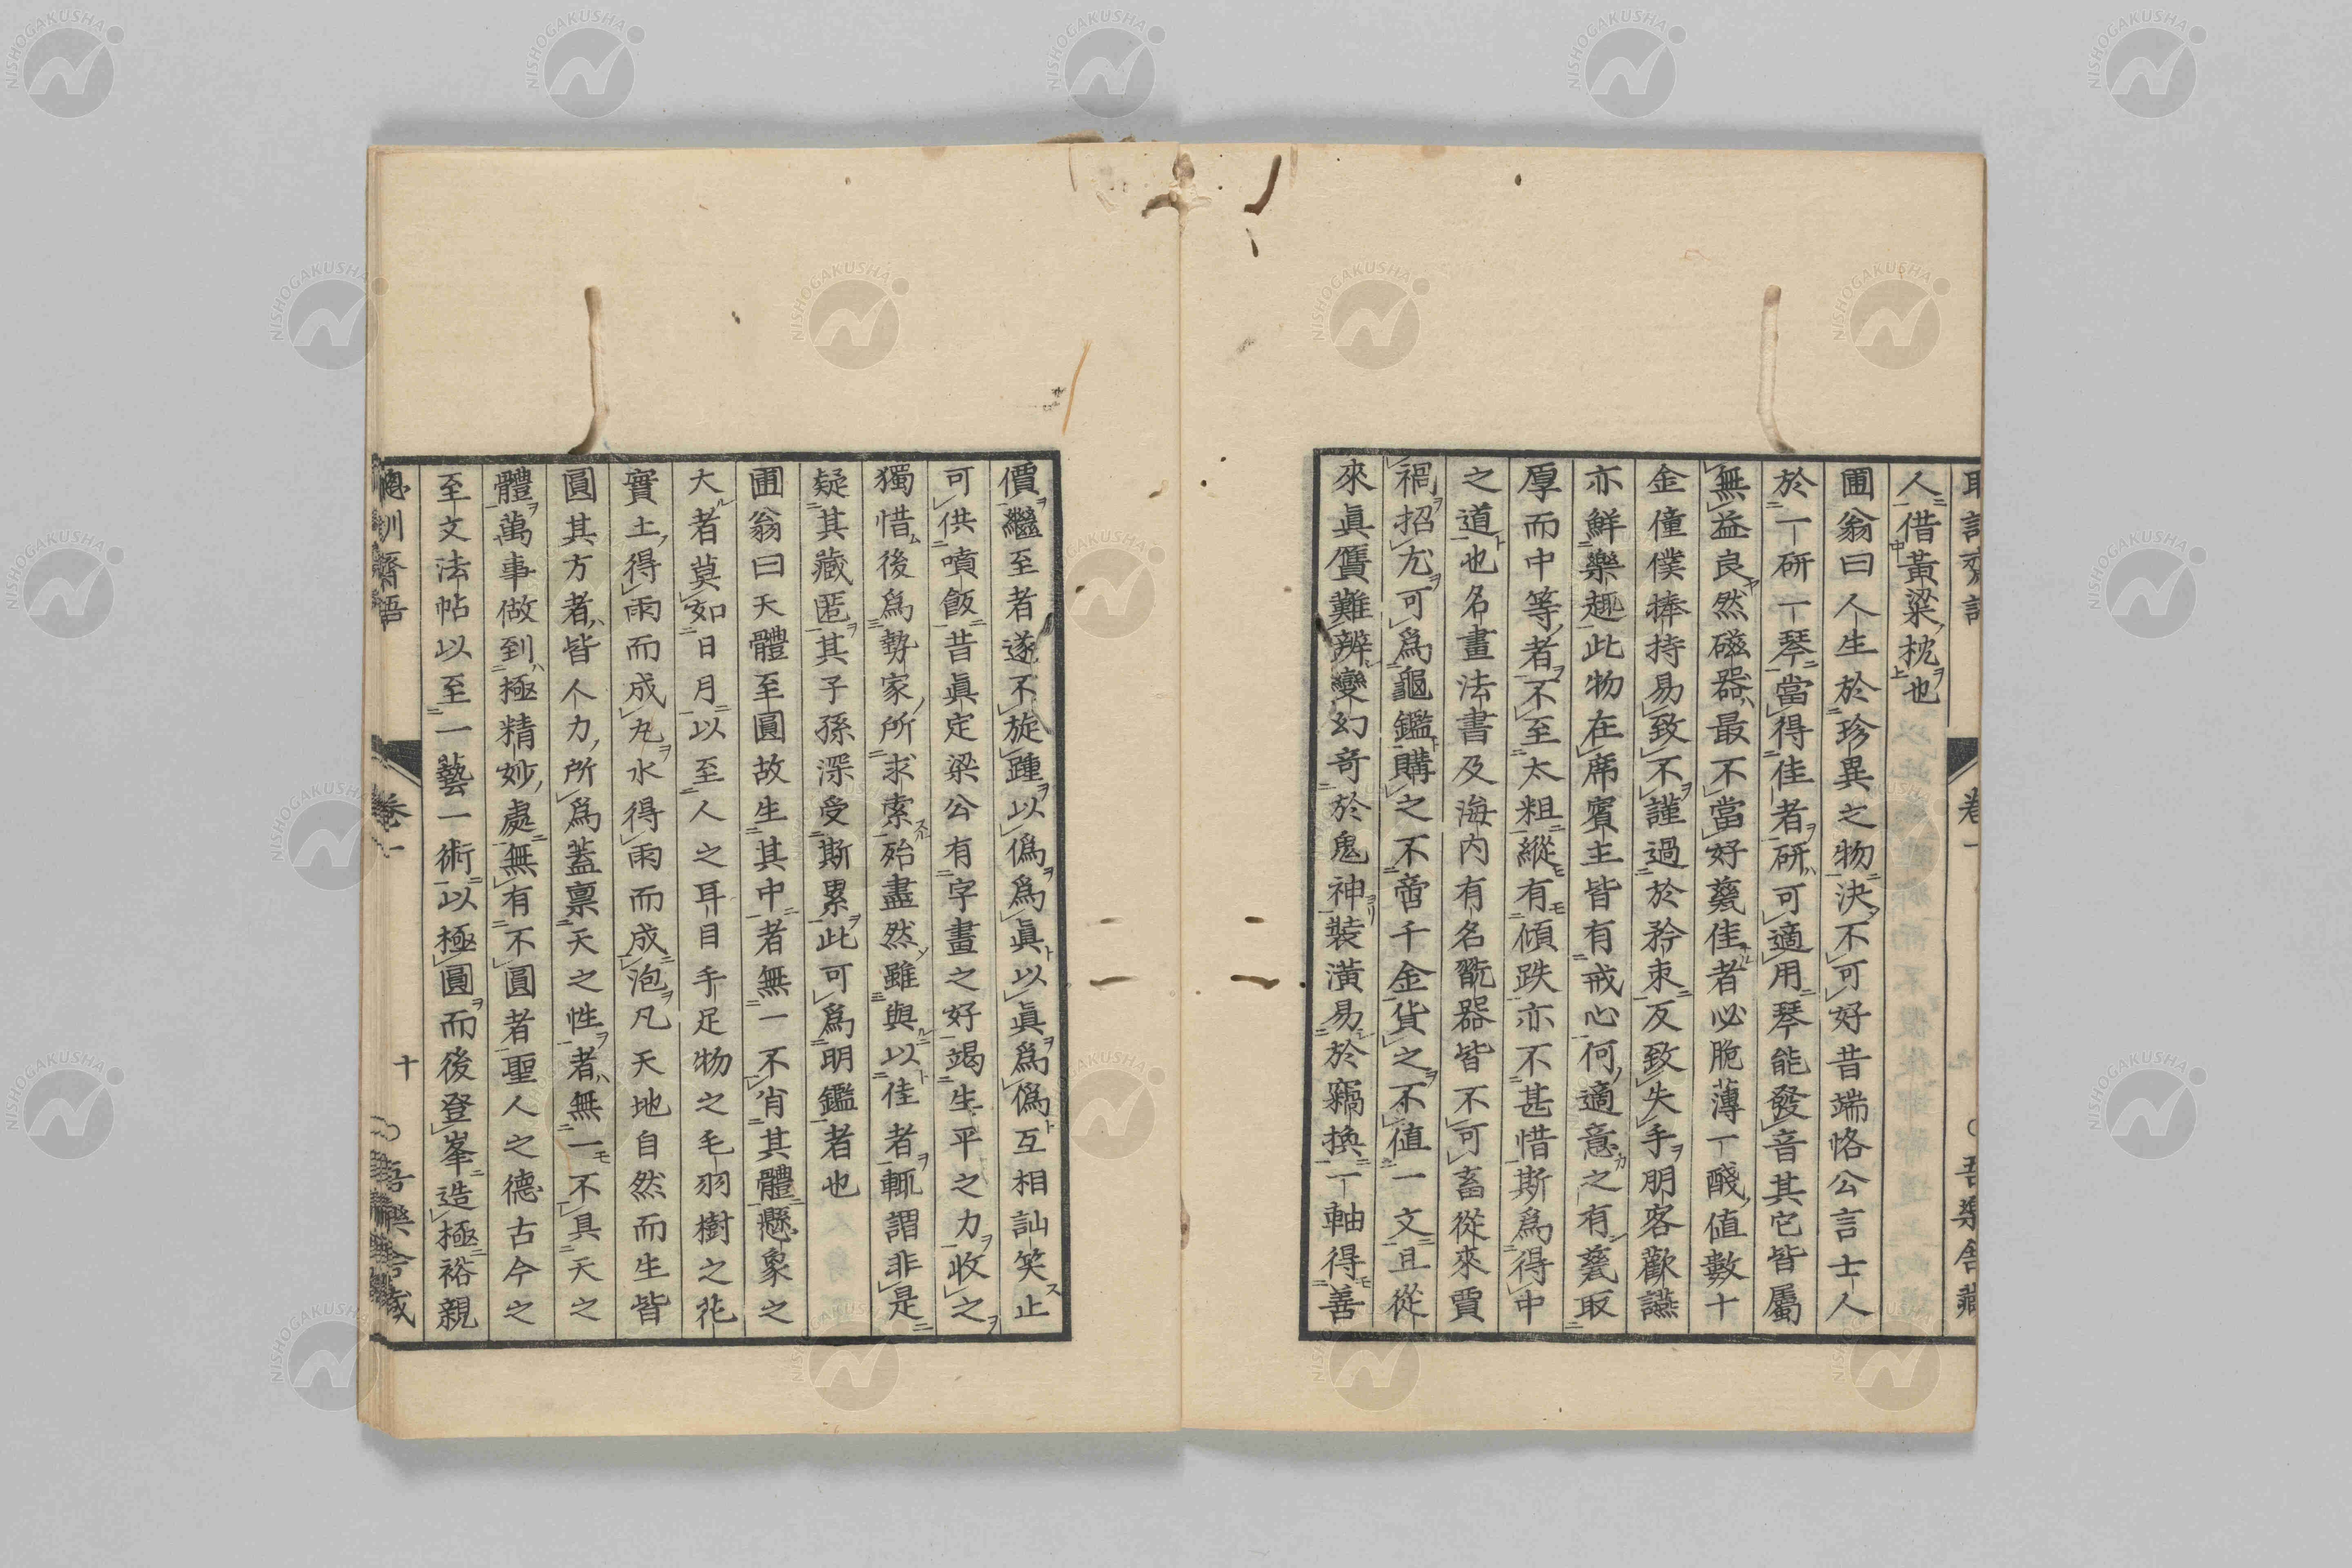 人借黃粱枕也
圃翁曰人生於珍異之物決不可好昔端恪公言士人
於一研一琴當得佳者研可適用琴能發音其它皆屬
無益良然磁器最不當好甆佳者必脆薄一醆値數十
金僮僕捧持易致不謹過於矜束反致失手朋客歡讌
亦鮮樂趣此物在席賓主皆有戒心何適意之有甆取
厚而中等者不至太粗縱有傾跌亦不甚惜斯爲得中
之道也名畫法書及海內有名翫器皆不可畜從來賈
禍招尤可爲龜鑑購之不啻千金貨之不値一文且從
來眞贋難辨變幻奇於鬼神裝潢易於竊換一軸得善
價繼至者遂不旋踵以僞爲眞以眞爲僞互相訕笑止
可供噴飯昔眞定梁公有字畫之好竭生平之力收之
獨惜後爲勢家所求索殆盡然雖與以佳者輒謂非是
疑其藏匿其子孫深受斯累此可爲明鑑者也
圃翁曰天體至圓故生其中者無一不肖其體懸象之
大者莫如日月以至人之耳目手足物之毛羽樹之花
實土得雨而成丸水得雨而成泡凡天地自然而生皆
圓其方者皆人力所爲蓋禀天之性者無一不具天之
體萬事做到極精妙處無有不圓者聖人之德古今之
至文法帖以至一藝一術以極圓而後登峯造極裕親
聰訓齋語　卷一　十　吾樂舎藏